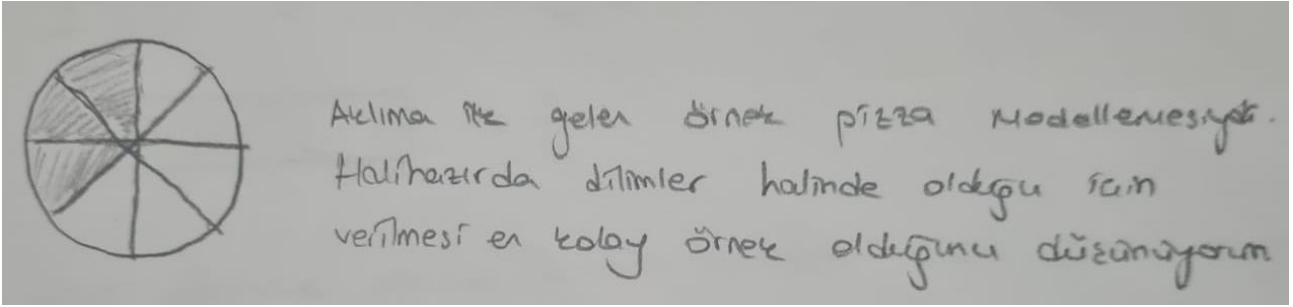 Aklıma ilk gelen örnek pizza modellemesiydi.
Halihazırda dilimler halinde olduğu için
verilmesi en kolay örnek olduğunu düşünüyorum